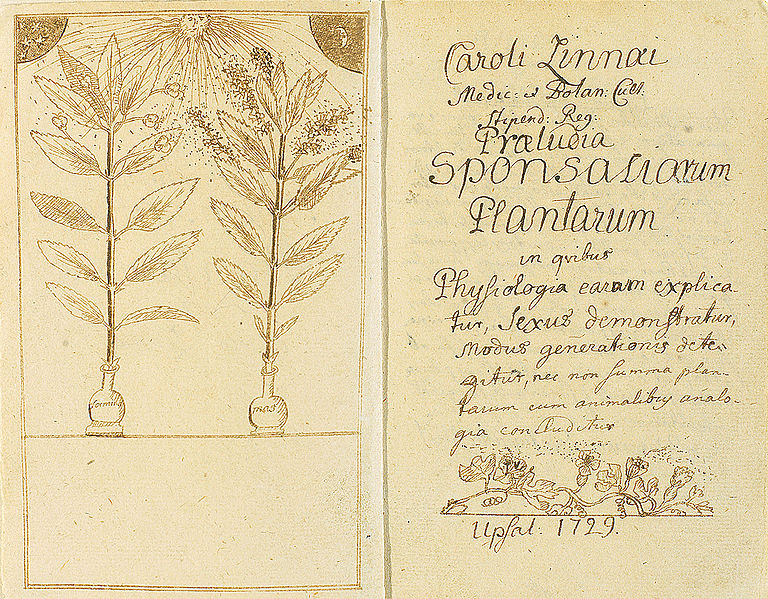 femina
mas
Caroli Linnæi
Medic: et Botan: Cult.
Stipend: Reg:
Præludia
Sponsaliarum
Plantarum
in qvibus
Physiologia earum explica
tur, Sexus demonstratur,
Modus generationis dete-
gitur, nec non summa plan-
tarum cum animalibus analo-
gia concluditur
Upsal. 1729.